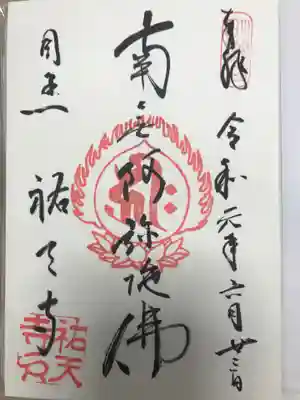 奉拝
令和元年六月廿三日
南無阿弥陀佛
目黒
祐天寺
祐天寺印